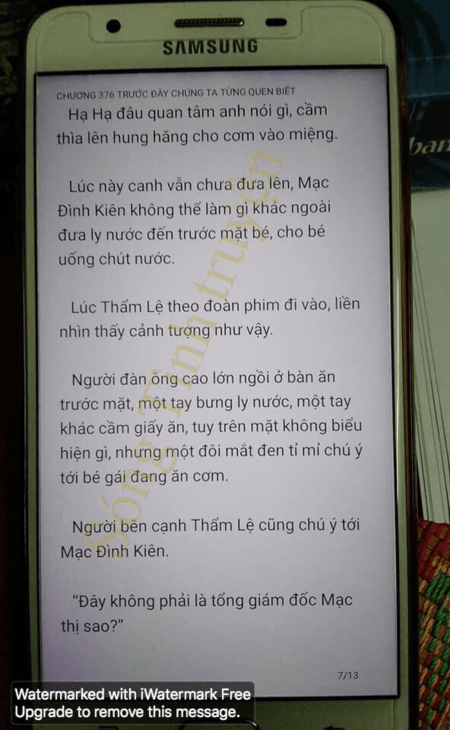 SAMSUNG
CHƯƠNG 376 TRƯỚC ĐÂY CHÚNG TA TỪNG QUEN BIẾT
Hạ Hạ đâu quan tâm anh nói gì, cầm
thìa lên hung hăng cho cơm vào miệng.
Lúc này canh vẫn chưa đưa lên, Mạc
Đình Kiên không thể làm gì khác ngoài
đưa ly nước đến trước mặt bé, cho bé
uống chút nước.
Lúc Thẩm Lệ theo đoàn phim đi vào, liền
nhìn thấy cảnh tượng như vậy.
Người đàn ông cao lớn ngồi ở bàn ăn
trước mặt, một tay bưng ly nước, một tay
khác cầm giấy ăn, tuy trên mặt không biểu
hiện gì, nhưng một đôi mắt đen tỉ mỉ chú ý
tới bé gái đang ăn cơm.
Người bên cạnh Thẩm Lệ cũng chú ý tới
Mạc Đình Kiên.
“Đây không phải là tổng giám đốc Mạc
thị sao?”
7/13
Sóng Tình truyện
Watermarked with iWatermark Free
Upgrade to remove this message.